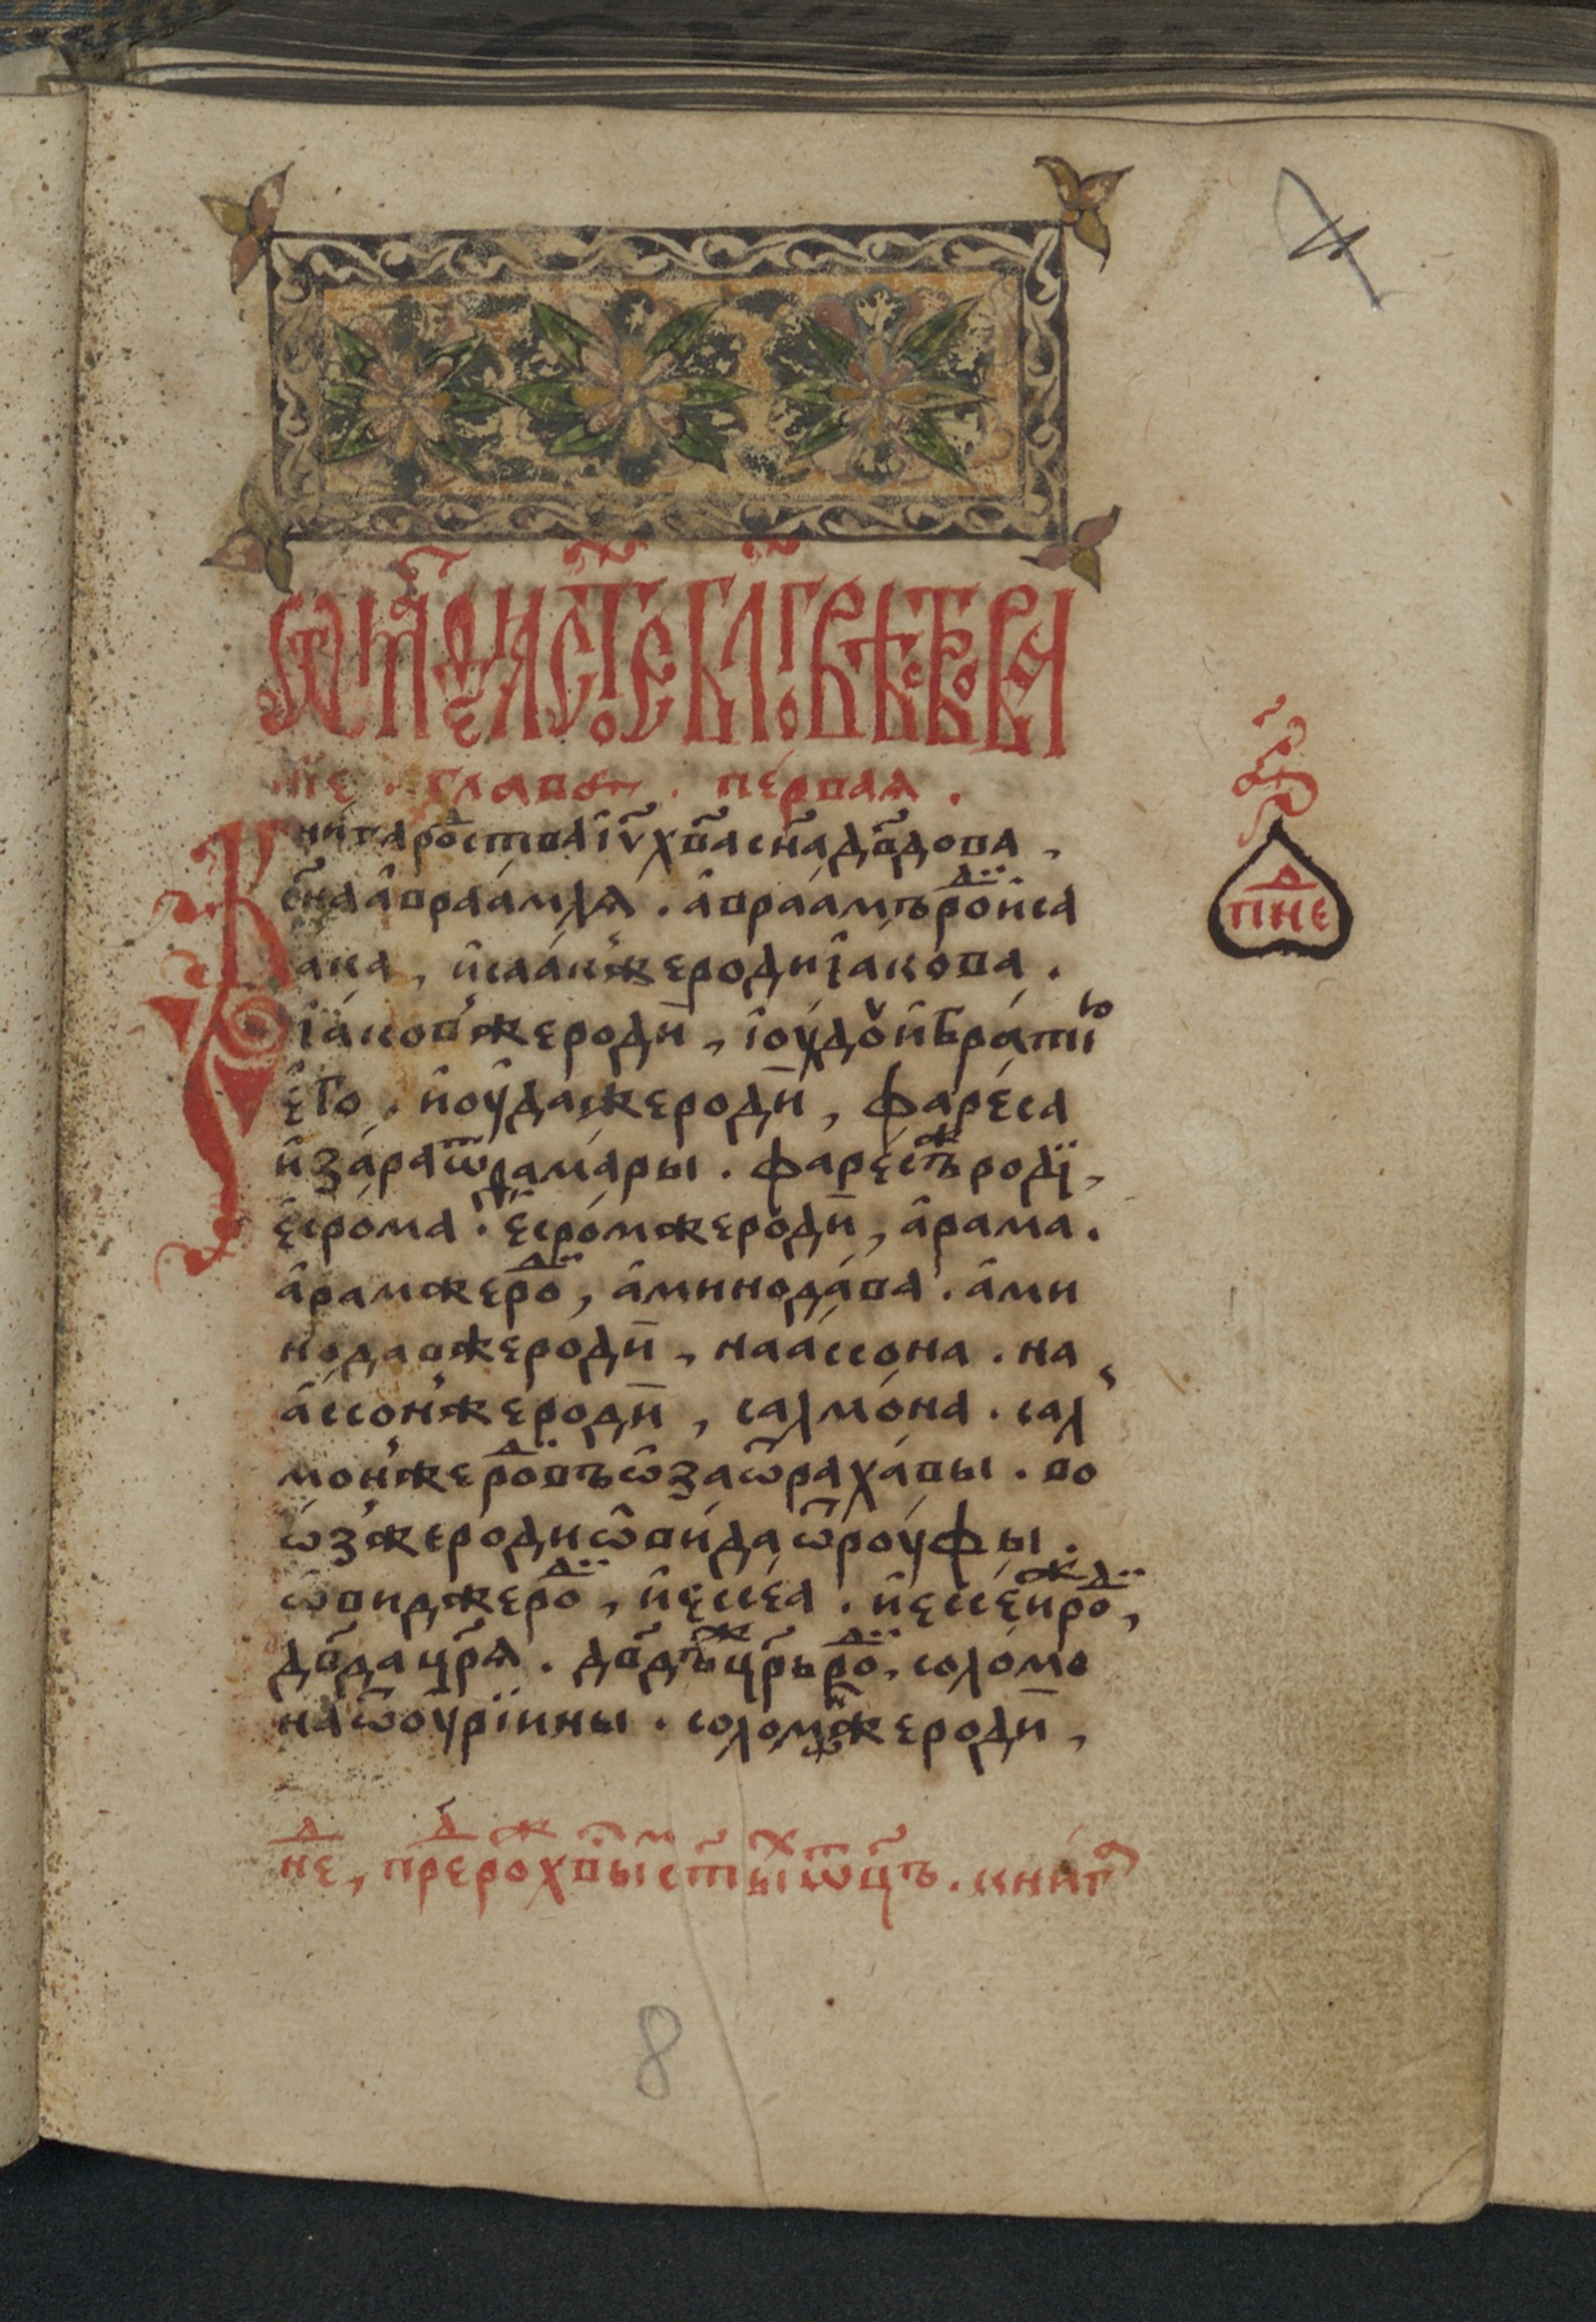 ѿ матѳеꙗ ст҃ое бл҃говѣствовая
нїе . глава . первая .
Книга рожⷭства і҆ѵ҃ хв҃а сн҃а дв҃дова ,
сн҃а а҆враа́млѧ . а҆враа́мъ роⷣ и҆са
а́ка , и҆саа́кже роди і҆а́кова .
і҆а́ковже роди̅ , і҆оу́дꋋ и҆ бра́тїю
є҆го̀ , и҆оу́да же роди̅ , фаре́са
и҆ за́ра ѿ ѳама́ры . фаре́съⷤ роди ,
є҆сро́ма . є҆сро́мже роди̅ , а҆ра́ма .
а҆ра́мже роⷣ , а҆минода́ва . а҆ми
нода́вже роди̅ , наассо́на . на
ассо́нже роди̅ , салмо́на . сал
мо́нже роⷣ воѡ҆за ѿ раха́вы . во
ѡ́зже роди ѡ҆ви́да ѿ роу́фы .
ѡ҆ви́дже роⷣ , и҆єссе́а . и҆єссе́йⷤ роⷣ ,
дв҃да цр҃ѧ . дв҃дъⷤ цр҃ь роⷣ , соломо
на ѿ оу҆рїины . солом́ѡнже роди̅ ,
неⷣ , преⷣ роⷤ хв҃ымъ ст҃ыⷯ ѿц҃ъ . книга
8